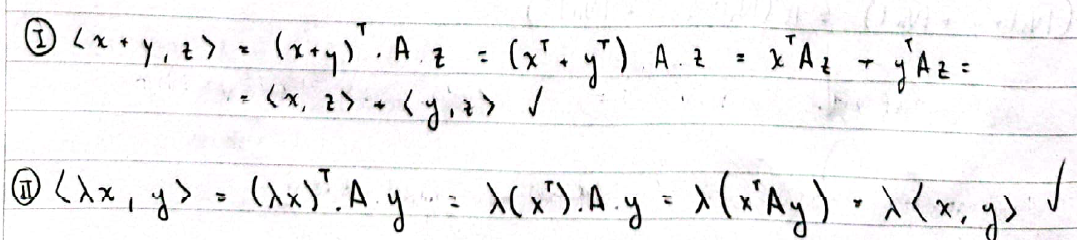 Ⓘ <x + y, z> = (x+y)ᵀ. A. z = (xᵀ + yᵀ) A. z = xᵀAz + yᵀAz =
= <x, z> + <y, z> ✓
Ⓘⓘ <λx, y> = (λx)ᵀ. A. y = λ(xᵀ). A. y = λ(xᵀAy) = λ<x, y> ✓